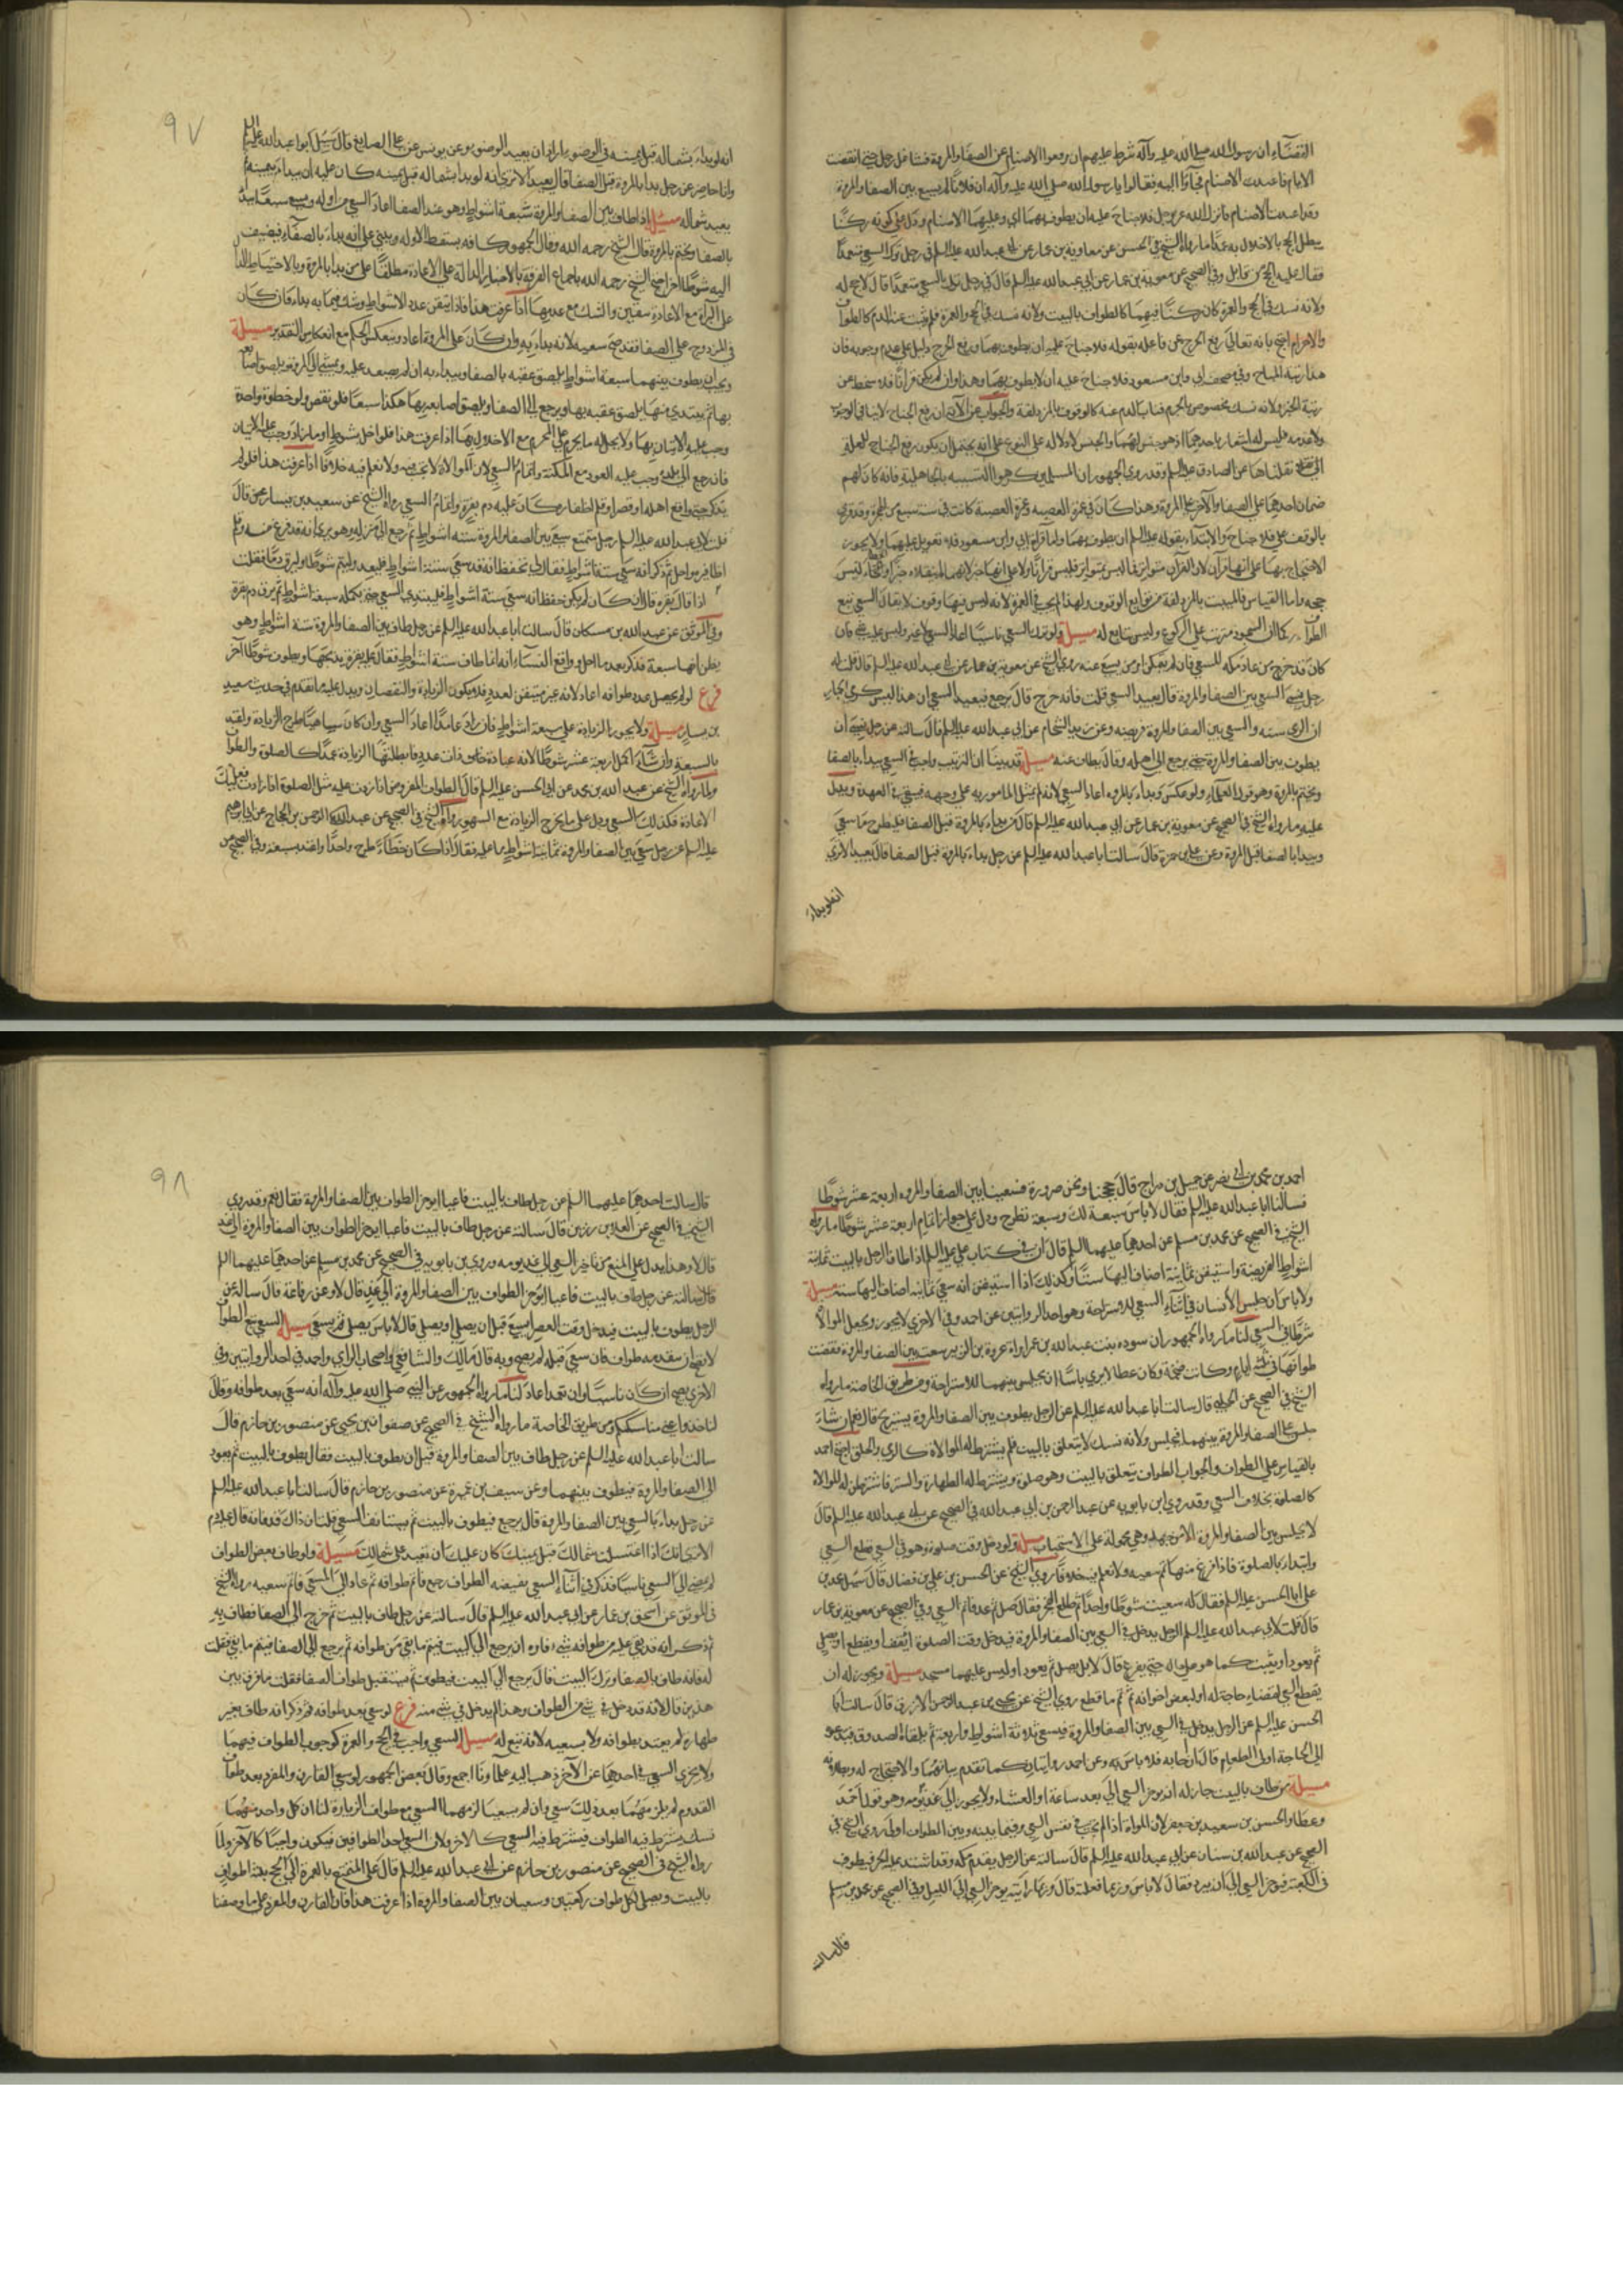 القضاء ان رسول الله صلى الله عليه وآله شرط عليهم ان يرفعوا الاصنام عن الصفا والمروة فتشاغل رجل حتى انقضت
الايام فاعيدت الاصنام فجاؤا اليه فقالوا يا رسول الله صلى الله عليه وآله ان فلانا لم يسع بين الصفا والمروة
وقد اعيدت الاصنام فانزل الله عز وجل فلا جناح عليه ان يطوف بهما اي وعليهما الاصنام ودل على كونه ركنا
يبطل الحج بالاخلال به عمدا ما رواه الشيخ في الحسن عن معاوية بن عمار عن ابي عبد الله عليه السلم في رجل ترك السعي متعمدا
فقال عليه الحج من قابل وفي الصحيح عن معوية بن عمار عن ابي عبد الله عليه السلم قال في رجل ترك السعي متعمدا قال لا حج له
ولانه نسك في الحج والعمرة فكان ركنا فيهما كالطواف بالبيت ولانه نسك في الحج والعمرة فلم ينب عنه الدم كالطواف
والاحرام احتج بانه تعالى رفع الحرج عن فاعله بقوله فلا جناح عليه ان يطوف بهما ورفع الحرج دليل على عدم وجوبه فان
هذا رتبة المباح وفي مصحف ابي وابن مسعود فلا جناح عليه ان لا يطوف بهما وهذا وان لم يكن قرانا فلا ينحط عن
رتبة الخبر ولانه نسك مخصوص بالحرم فناب الدم عنه كالوقوف بالمزدلفة والجواب عن الآية ان رفع الجناح لا ينافي الوجوب
ولا عدمه فليس له اشعار باحدهما اذ هو جنس لهما والجنس لا دلالة له على النوع على انه يحتمل ان يكون رفع الجناح للعلة
التي نقلناها عن الصادق عليه السلم وقد روى الجمهور ان المسلمين كرهوا التشبيه بالجاهلية فانه كان لهم
صنمان احدهما على الصفا والآخر على المروة وهذا كان في عمرة القضية وعمرة القضية كانت في سنة سبع من الهجرة وقد قرئ
بالوقف على فلا جناح والابتداء بقوله عليه ان يطوف بهما واما قراءة ابي وابن مسعود فلا تعويل عليهما ولا يجوز
الاحتجاج بها على انها قرآن لان القرآن متواتر فما ليس بمتواتر فليس قرانا ولا على انها خبر لانهما لم ينقلاه خبرا والخطاء ليس
حجة واما القياس فالمبيت بالمزدلفة من توابع الوقوف ولهذا لم يجب في العمرة لانه ليس فيها وقوف لا يقال السعي تبع
الطواف كما ان السجود مترتب على الركوع وليس بتابع له مسئلة ولو ترك السعي ناسيا اعاد السعي لا غير وليس عليه شئ فان
كان قد خرج من مكة عاد للسعي فان لم يتمكن امر من يسعى عنه روى الشيخ عن معوية بن عمار عن ابي عبد الله عليه السلم قال قلت له
رجل نسي السعي بين الصفا والمروة قال يعيد السعي قلت فانه خرج قال يرجع فيعيد السعي ان هذا ليس كرمي الجمار
ان الرمي سنة والسعي بين الصفا والمروة فريضة وعن زيد الشحام عن ابي عبد الله عليه السلم قال سالته عن رجل نسي ان
يطوف بين الصفا والمروة حتى يرجع الى اهله وقال يطاف عنه مسئلة قد بينا ان الترتيب واجب في السعي يبدأ بالصفا
ويختم بالمروة وهو قول العلماء ولو عكس وبدأ بالمروة اعاد السعي لانه لم يمتثل المامور به على وجهه فيبقى في العهدة ويدل
عليه ما رواه الشيخ في الصحيح عن معوية بن عمار عن ابي عبد الله عليه السلم قال من بدأ بالمروة قبل الصفا فليطرح ما سعى
ويبدا بالصفا قبل المروة وعن علي بن حمزة قال سالت ابا عبد الله عليه السلم عن رجل بدأ بالمروة قبل الصفا قال يعيد الا ترى
انه لو بداء
٩٧
انه لو بداء بشماله قبل يمينه في الوضوء اراد ان يعيد الوضوء وعن يونس عن علي الصايغ قال سئل ابو عبد الله عليه السلم
وانا حاضر عن رجل بدا بالمروة قبل الصفا قال يعيد الا ترى انه لو بدا بشماله قبل يمينه كان عليه ان يبداء بيمينه ثم
يعيد شماله مسئلة اذا طاف بين الصفا والمروة سبعة اشواط وهو عند الصفا اعاد السعي من اوله وسعى سبعا يبدأ
بالصفا ويختم بالمروة قال الشيخ رحمه الله وقال الجمهور كافة يسقط الاولة ويبني على انه بداء بالصفا فيضيف
اليه شوطا آخر احتج الشيخ رحمه الله باجماع الفرقة بالاخبار الدالة على الاعادة مطلقا على من بدا بالمروة وبالاحتياط الدال
على البراءة مع الاعادة بيقين والشك مع عدمها اذا عرفت هذا فاذا تيقن عدد الاشواط وشك فيما به بداء فان كان
في المزدوج على الصفا فقد صح سعيه لانه بداء به وان كان على المروة اعاد وينعكس الحكم مع انعكاس التقدير مسئلة
ويجب ان يطوف بينهما سبعة اشواط يلصق عقبه بالصفا ويبداء به ان لم يصعد عليه ويمشي الى المروة ويلصق اصابعه
بها ثم يبتدي منها يلصق عقبه بها ويرجع الى الصفا ويلصق اصابعه بها هكذا سبعا فلو نقص ولو خطوة واحدة
وجب عليه الاتيان بها ولا يحل له ما يحرم على المحرم مع الاخلال بها اذا عرفت هذا فلو اخل بشوط او ما زاد وجب عليه الاتيان
فان رجع الى بلده وجب عليه العود مع المكنة واتمام السعي لان الموالاة لا تجب فيه ولا نعلم فيه خلافا اذا عرفت هذا فلو لم
يذكر حتى واقع اهله او قصر او قلم اظفاره كان عليه دم بقرة واتمام السعي رواه الشيخ عن سعيد بن يسار قال
قلت لابي عبد الله عليه السلم رجل متمتع سعى بين الصفا والمروة ستة اشواط ثم رجع الى منزله وهو يرى انه قد فرغ منه وقلم
اظافيره واحل ثم ذكر انه سعى ستة اشواط فقال لي يحفظ انه قد سعى ستة اشواط فليعد وليتم شوطا وليرق دما فقلت
اذا قال بقرة قال وان كان لم يكن حفظ انه سعى ستة اشواط فليبتدي السعي حتى يكمله سبعة اشواط ثم يرق دم بقرة
وفي الموثق عن عبد الله بن مسكان قال سالت ابا عبد الله عليه السلم عن رجل طاف بين الصفا والمروة ستة اشواط وهو
يظن انها سبعة فذكر بعد ما احل وواقع النساء انه انما طاف ستة اشواط فقال عليه بقرة يذبحها ويطوف شوطا آخر
فرع لو لم يحصل عدد طوافه اعاد لانه غير متيقن لعدد فقد يكون الزيادة والنقصان ويدل عليه ما تقدم في حديث سعيد
بن يسار مسئلة ولا يجوز الزيادة على سبعة اشواط فان زاد عامدا اعاد السعي وان كان ساهيا طرح الزيادة واعتد
بالسبعة وان شاء اكمل اربعة عشر شوطا لانه عبادة ذات عدد فابطلتها الزيادة عمدا كالصلوة والطواف
ولما رواه الشيخ عن عبد الله بن محمد عن ابي الحسن عليه السلم قال الطواف المفروض اذا زدت عليه مثل الصلوة اذا زدت فعليك
الاعادة فكذلك السعي ودل على ما يخرج الزيادة مع السهو رواه الشيخ في الصحيح عن عبد الرحمن بن الحجاج عن ابي ابراهيم
عليه السلم عن رجل سعى بين الصفا والمروة ثمانية اشواط ما عليه فقال اذا كان خطاء طرح واحدا واعتد بسبعة وفي الصحيح عن
احمد بن محمد بن ابي نصر عن جميل بن دراج قال حججنا ونحن صرورة فسعينا بين الصفا والمروة اربعة عشر شوطا
فسالنا ابا عبد الله عليه السلم فقال لا باس سبعة لك وسبعة تطرح ودل على جواز اتمام اربعة عشر شوطا ما رواه
الشيخ في الصحيح عن محمد بن مسلم عن احدهما عليهما السلم قال ان في كتاب علي عليه السلم اذا طاف الرجل بالبيت ثمانية
اشواط الفريضة واستيقن ثمانية اضاف اليها ستا وكذلك اذا استيقن انه سعى ثمانية اضاف اليها ستة مسئلة
ولا باس ان يجلس الانسان في اثناء السعي للاستراحة وهو احد الروايتين عن احمد وفي الاخرى لا يجوز ويجعل الموالاة
شرطا في السعي لنا ما رواه الجمهور ان سودة بنت عبد الله بن عمر امراة عروة بن الزبير سعت بين الصفا والمروة فقضت
طوافها في ثلثة ايام وكانت ضخمة وكان عطا لا يرى باسا ان يجلس بينهما للاستراحة ومن طريق الخاصة ما رواه
الشيخ في الصحيح عن الحلبي قال سالت ابا عبد الله عليه السلم عن الرجل يطوف بين الصفا والمروة يستريح قال نعم ان شاء
جلس على الصفا والمروة وبينهما فيجلس ولانه نسك لا يتعلق بالبيت فلم يشترط له الموالاة كالرمي والحلق احتج احمد
بالقياس على الطواف والجواب الطواف يتعلق بالبيت وهو صلوة ويشترط له الطهارة والستر فاشترطت له الموالاة
كالصلوة بخلاف السعي وقد روى ابن بابويه عن عبد الرحمن بن ابي عبد الله في الصحيح عن ابي عبد الله عليه السلم قال
لا يجلس بين الصفا والمروة الا من جهد وهي محمولة على الاستحباب مسئلة ولو دخل وقت صلوة وهو في السعي قطع السعي
وابتداء بالصلوة فاذا فرغ منها تم سعيه ولا نعلم فيه خلافا روى الشيخ عن الحسن بن علي بن فضال قال سئل محمد بن
علي ابا الحسن عليه السلم فقال له سعيت شوطا واحدا ثم طلع الفجر فقال صل ثم عد فاتم السعي وفي الصحيح عن معوية بن عمار
قال قلت لابي عبد الله عليه السلم الرجل يدخل في السعي بين الصفا والمروة فيدخل وقت الصلوة ايخفف او يقطع او يصلي
ثم يعود او يثبت كما هو على حاله حتى يفرغ قال لا بل يصل ثم يعود او ليس عليهما مسجد مسئلة ويجوز له ان
يقطع السعي لقضاء حاجة له او لبعض اخوانه ثم يتم ما قطع روى الشيخ عن يحيى بن عبد الرحمن الازرق قال سالت ابا
الحسن عليه السلم عن الرجل يدخل في السعي بين الصفا والمروة فيسعى ثلاثة اشواط او اربعة ثم يلقاه الصديق فيدعوه
الى الحاجة او الى الطعام قال ان اجابه فلا باس به وعن احمد روايتان كما تقدم بيانهما والاحتجاج له وجوابه
مسئلة من طاف بالبيت جاز له ان يؤخر السعي الى بعد ساعة او العشاء ولا يجوز الى غد يومه وهو قول احمد
وعطا والحسن بن سعيد بن جبير لان الموالاة اذا لم تجب في نفس السعي وفيما بينه وبين الطواف اولى روى الشيخ في
الصحيح عن عبد الله بن سنان عن ابي عبد الله عليه السلم قال سالته عن الرجل يقدم مكة وقد اشتد عليه الحر فيطوف
في الكعبة فيؤخر السعي الى ان يبرد فقال لا باس وربما فعلته قال وربما رايته يؤخر السعي الى الليل وفي الصحيح عن محمد بن مسلم
قال سالت
٩٨
قال سالت احدهما عليهما السلم عن رجل طاف بالبيت فاعيا ايؤخر الطواف بين الصفا والمروة فقال نعم وقد روى
الشيخ في الصحيح عن العلا بن رزين قال سالته عن رجل طاف بالبيت فاعيا ايؤخر الطواف بين الصفا والمروة الى غد
قال لا وهذا يدل على المنع من تاخير السعي الى غد يومه وروى بن بابويه في الصحيح عن محمد بن مسلم عن احدهما عليهما السلم
قال سالته عن رجل طاف بالبيت فاعيا ايؤخر الطواف بين الصفا والمروة الى غد قال لا وعن رفاعة قال سالته عن
الرجل يطوف بالبيت فيدخل وقت العصر ايسعى قبل ان يصلي او يصلي قال لا باس يصلي ثم يسعى مسئلة السعي تبع للطواف
لا يصح ان يتقدمه طواف فان سعى قبله لم يصح وبه قال مالك والشافعي واصحاب الراي واحمد في احد الروايتين وفي
الاخرى يصح ان كان ناسيا وان تعمد اعاد لنا ما رواه الجمهور عن النبي صلى الله عليه وآله انه سعى بعد طوافه وقال
لنا خذوا عني مناسككم ومن طريق الخاصة ما رواه الشيخ في الصحيح عن صفوان بن يحيى عن منصور بن حازم قال
سالت ابا عبد الله عليه السلم عن رجل طاف بين الصفا والمروة قبل ان يطوف بالبيت فقال يطوف بالبيت ثم يعود
الى الصفا والمروة فيطوف بينهما وعن سيف بن عميرة عن منصور بن حازم قال سالت ابا عبد الله عليه السلم
عن رجل بداء بالسعي بين الصفا والمروة قال يرجع فيطوف بالبيت ثم يستانف السعي قلت ان ذلك قد فاته قال عليه دم
الا ترى انك اذا اغتسلت شمالك قبل يمينك كان عليك ان تعيد على شمالك مسئلة ولو طاف بعض الطواف
ثم مضى الى السعي ناسيا فذكر في اثناء السعي نقيصة الطواف رجع فاتم طوافه ثم عاد الى السعي فاتم سعيه رواه الشيخ
في الموثق عن اسحق بن عمار عن ابي عبد الله عليه السلم قال سالته عن رجل طاف بالبيت ثم خرج الى الصفا فطاف به
ثم ذكر انه قد بقي عليه من طوافه شيء فامره ان يرجع الى البيت فيتم ما بقي من طوافه ثم يرجع الى الصفا فيتم ما بقي فقلت
له فانه طاف بالصفا وترك البيت قال يرجع الى البيت فيطوف ثم يستقبل طواف الصفا فقلت ما فرق بين
هذين قال لانه قد دخل في شيء من الطواف وهذا لم يدخل في شيء منه فرع لو سعى بعد طوافه ثم ذكر انه طاف بغير
طهارة لم يعتد بطوافه ولا بسعيه لانه تبع له مسئلة السعي واجب في الحج والعمرة كوجوب الطواف فيهما
ولا يجزي السعي في احدهما عن الآخر ذهب اليه علماؤنا اجمع وقال بعض الجمهور لو سعى القارن والمفرد بعد طواف
القدوم لم يلزمهما بعد ذلك سعي وان لم يسعيا لزمهما السعي مع طواف الزيارة لنا ان كل واحد منهما
نسك يشترط فيه الطواف فيشترط فيه السعي كالآخر ولان السعي احد الطوافين فيكون واجبا كالآخر ولما
رواه الشيخ في الصحيح عن منصور بن حازم عن ابي عبد الله عليه السلم قال على المتمتع بالعمرة الى الحج ثلثة اطواف
بالبيت ويصلى لكل طواف ركعتين وسعيان بين الصفا والمروة اذا عرفت هذا فان القارن والمفرد على ما وصفنا